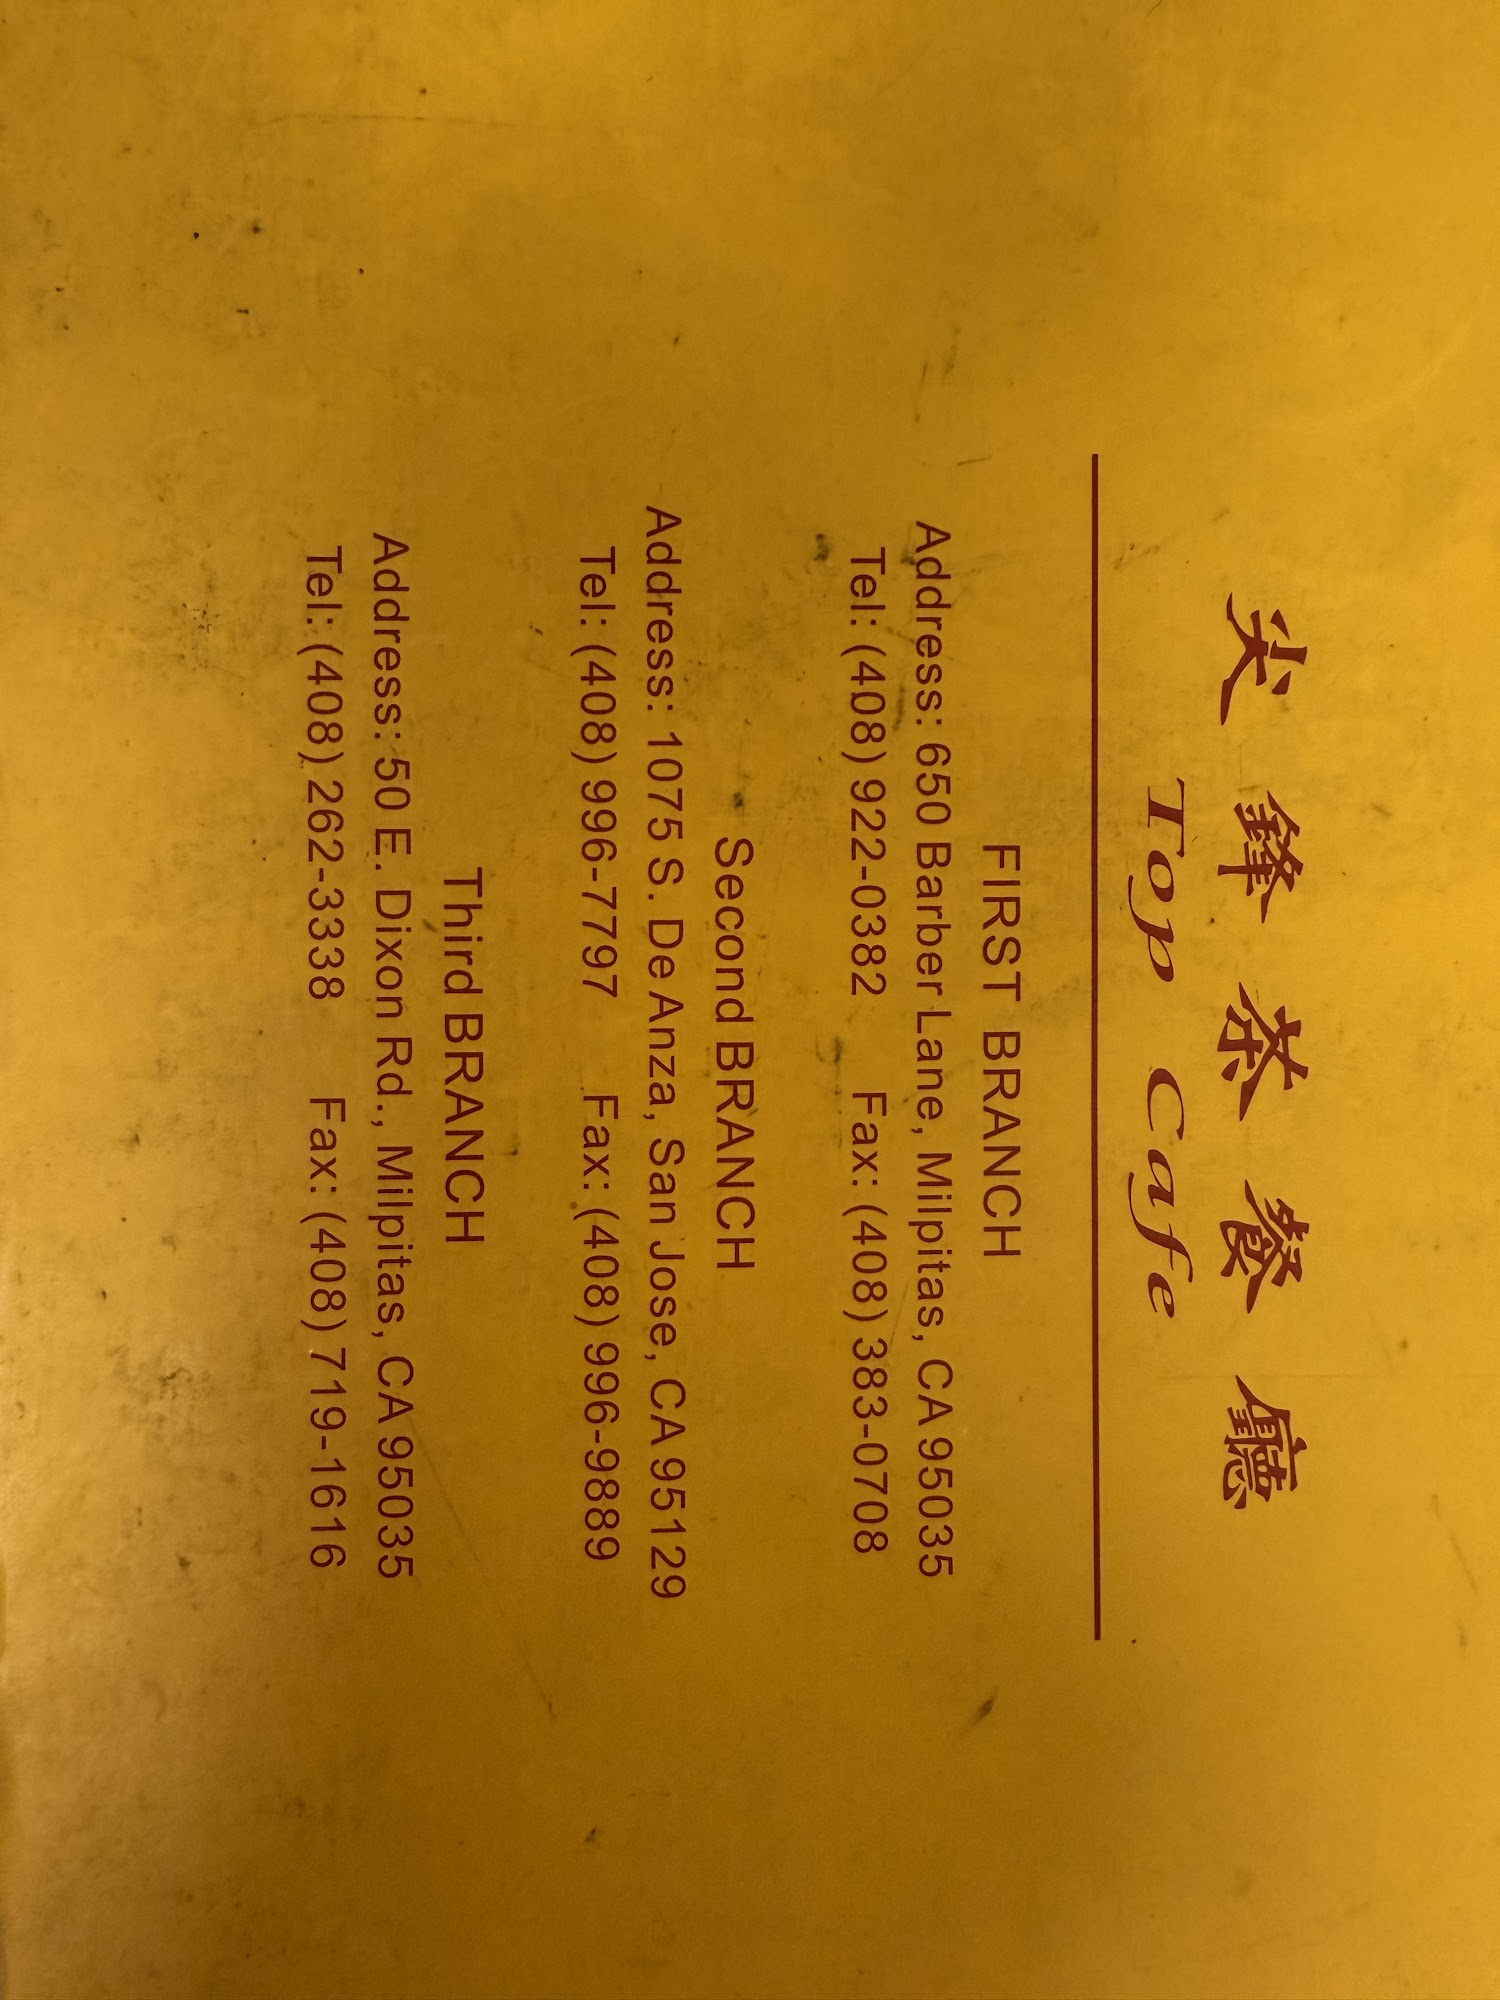 尖鋒茶餐廳
Top Cafe
FIRST BRANCH
Address: 650 Barber Lane, Milpitas, CA 95035
Tel: (408) 922-0382 Fax: (408) 383-0708
Second BRANCH
Address: 1075 S. De Anza, San Jose, CA 95129
Tel: (408) 996-7797 Fax: (408) 996-9889
Third BRANCH
Address: 50 E. Dixon Rd., Milpitas, CA 95035
Tel: (408) 262-3338 Fax: (408) 719-1616